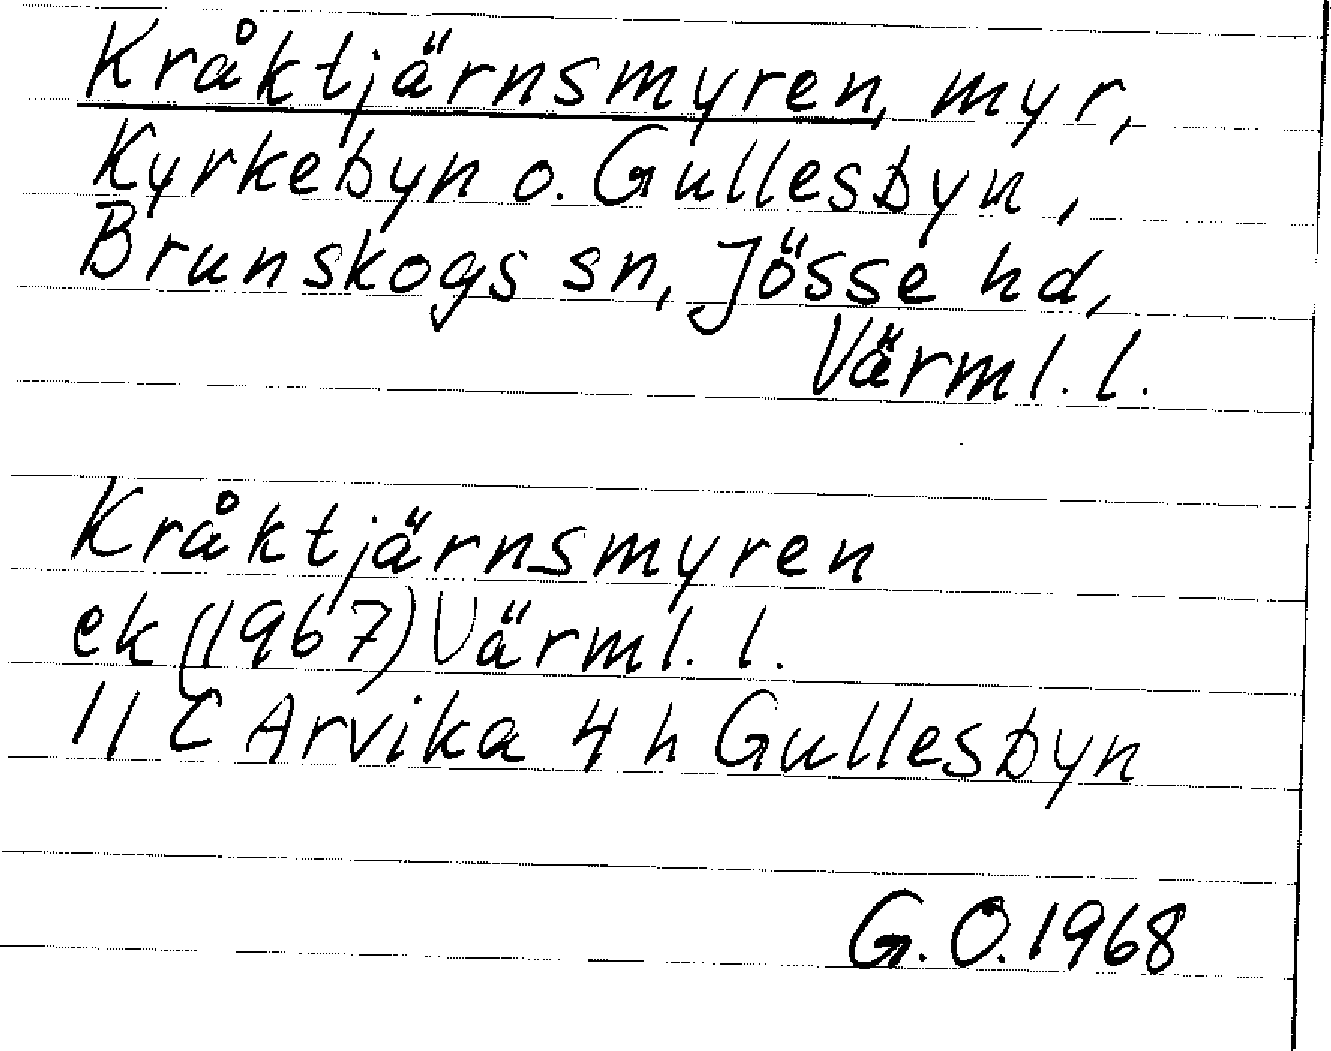 Kråktjärnsmyren, myr,
Kyrkebyn o. Gullesbyn,
Brunskogs sn, Jösse hd,
Värml. l.
Kråktjärnsmyren
ek (1967) Värml. l.
11 C Arvika 4 h Gullesbyn
G. O. 1968